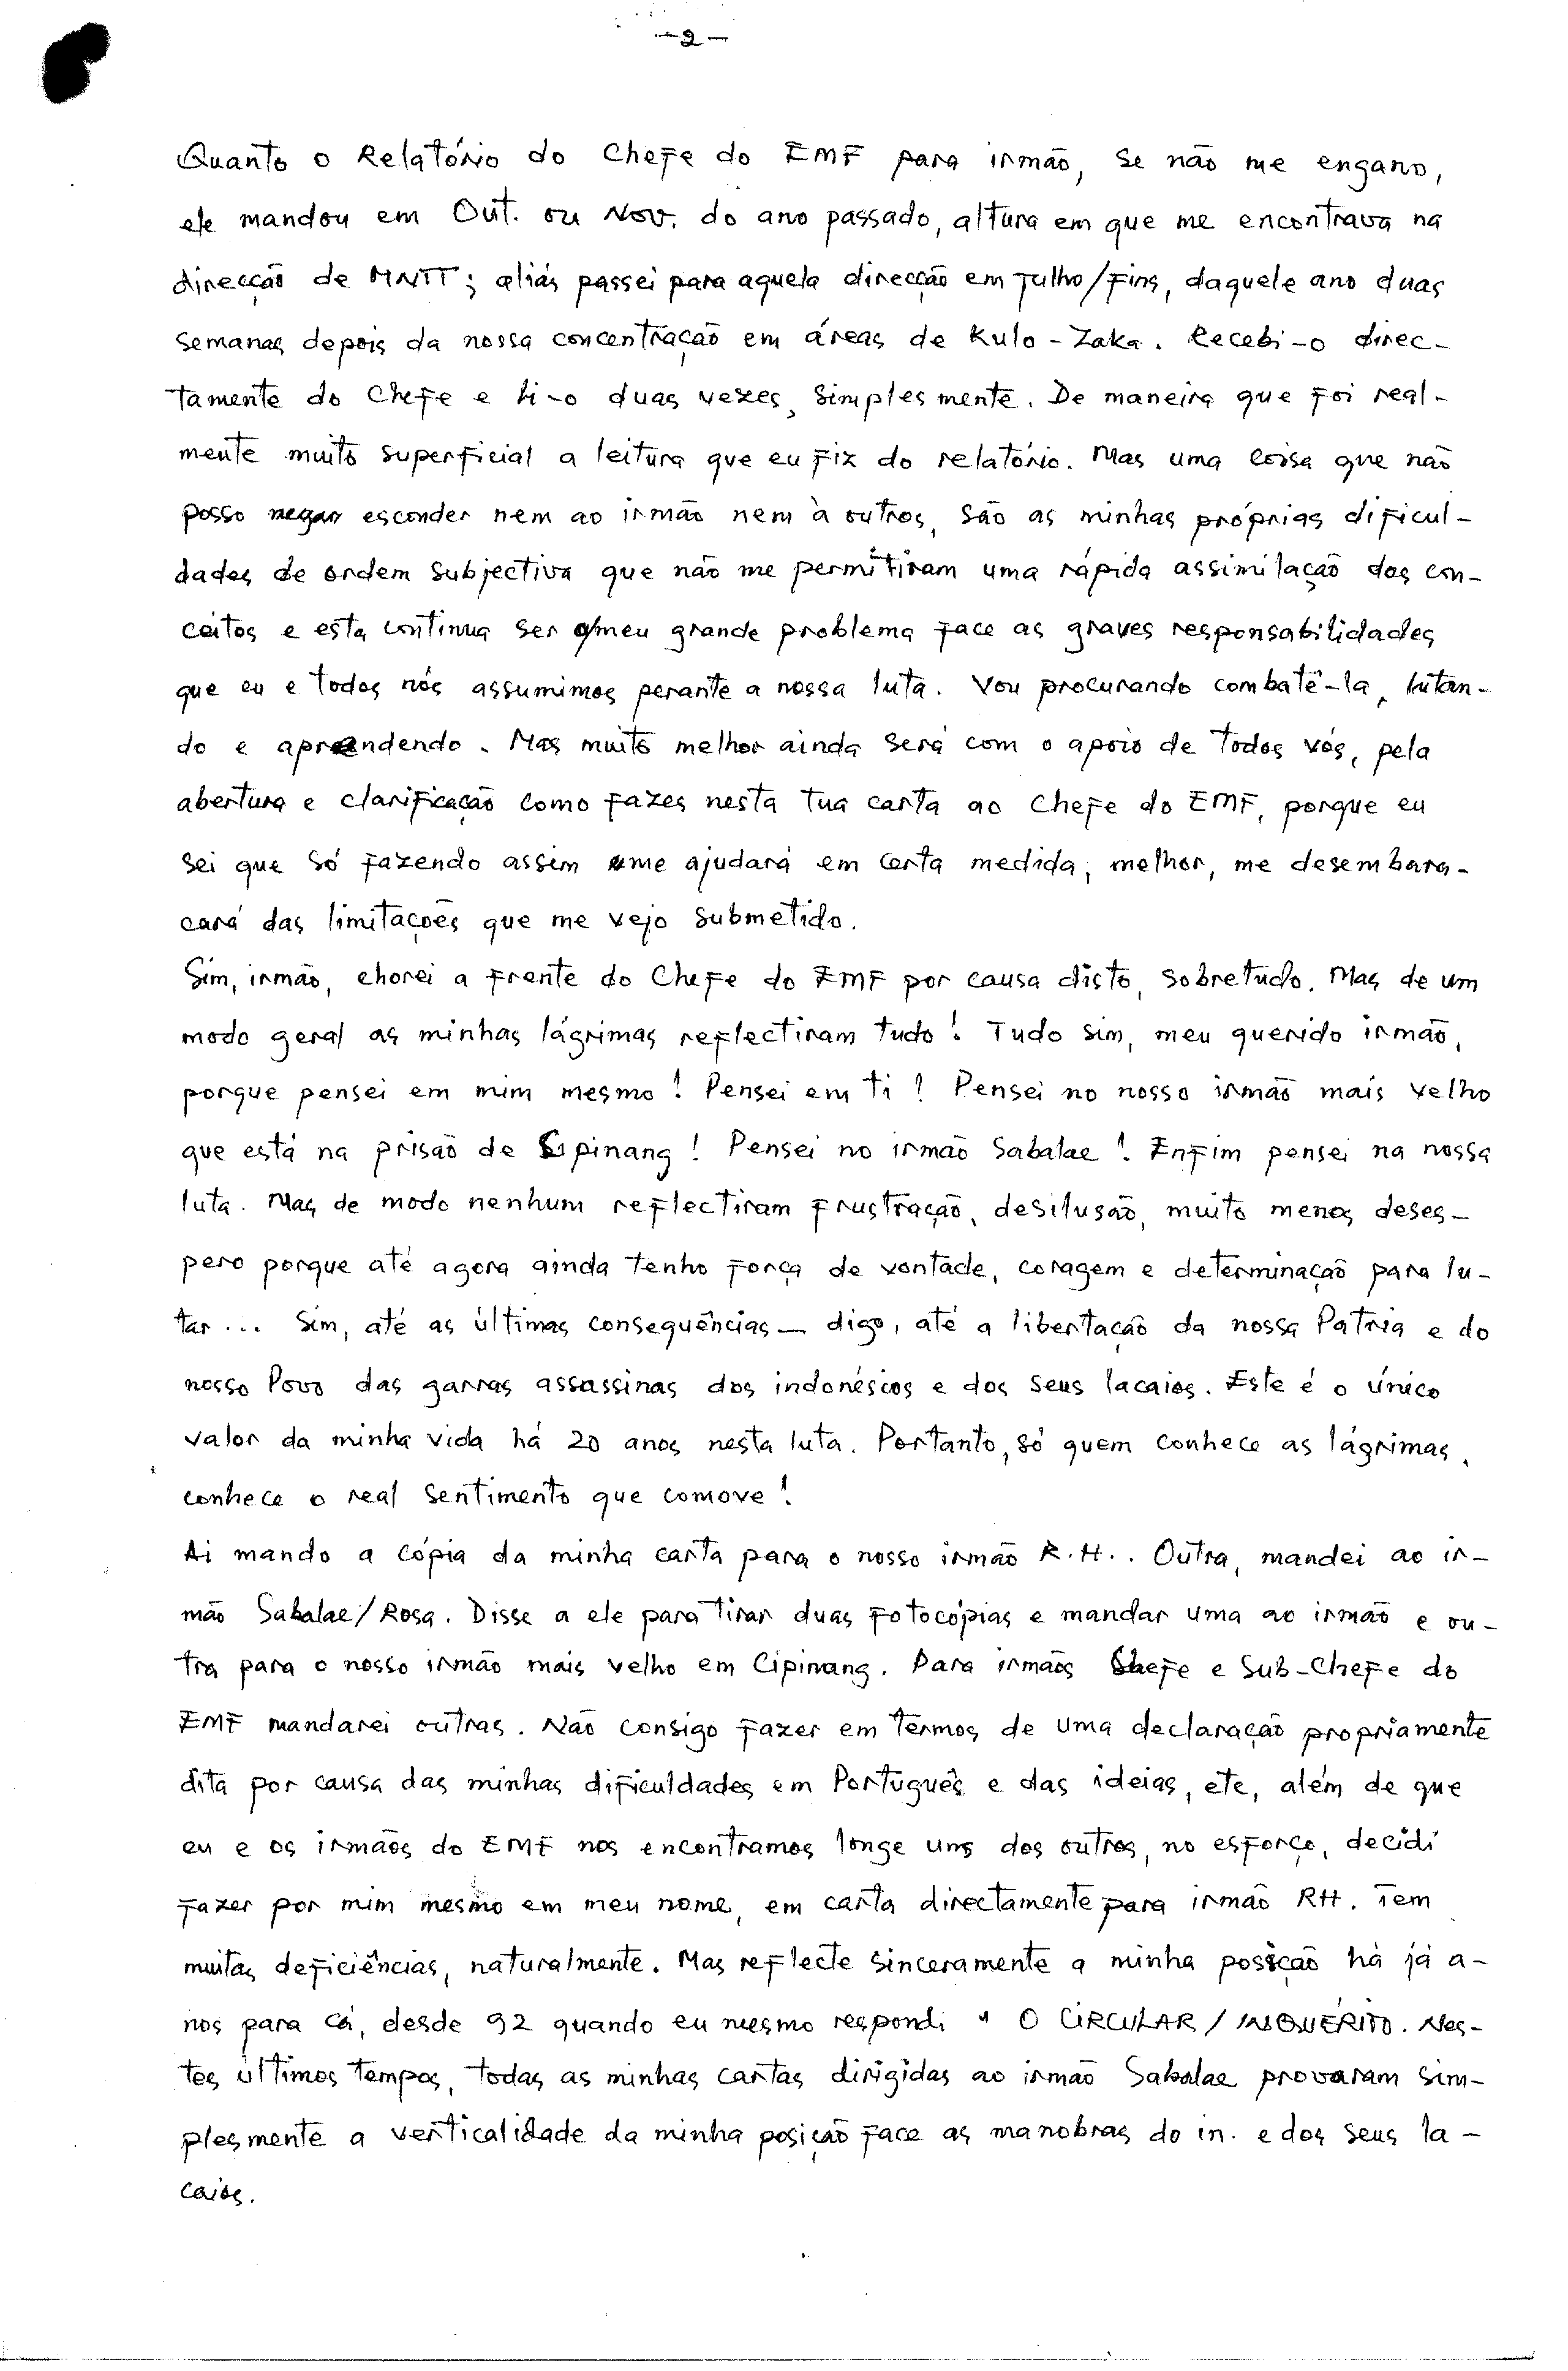 -2-
Quanto o Relatório do Chefe do EMF para irmão, se não me engano,
ele mandou em Out. ou Nov. do ano passado, altura em que me encontrava na
direcção de MNTT; aliás passei para aquela direcção em Julho/fins, daquele ano duas
semanas depois da nossa concentração em áreas de Kulo-Zaka. Recebi-o direc-
tamente do Chefe e li-o duas vezes, simplesmente. De maneira que foi real-
mente muito superficial a leitura que eu fiz do relatório. Mas uma coisa que não
posso negar esconder nem ao irmão nem à outros, são as minhas próprias dificul-
dades de ordem subjectiva que não me permitiram uma rápida assimilação dos con-
ceitos e esta continua ser o meu grande problema face as graves responsabilidades
que eu e todos nós assumimos perante a nossa luta. Vou procurando combatê-la, lutan-
do e aprendendo. Mas muito melhor ainda será com o apoio de todos vós, pela
abertura e clarificação como fazes nesta tua carta ao Chefe do EMF, porque eu
sei que só fazendo assim me ajudará em certa medida, melhor, me desembara-
cará das limitações que me vejo submetido.
Sim, irmão, chorei a frente do Chefe do EMF por causa disto, sobretudo. Mas de um
modo geral as minhas lágrimas reflectiram tudo! Tudo sim, meu querido irmão,
porque pensei em mim mesmo! Pensei em ti! Pensei no nosso irmão mais velho
que está na prisão de Cipinang! Pensei no irmão Sabalae! Enfim pensei na nossa
luta. Mas de modo nenhum reflectiram frustração, desilusão, muito menos deses-
pero porque até agora ainda tenho força de vontade, coragem e determinação para lu-
tar... Sim, até as últimas consequências - digo, até a libertação da nossa Patria e do
nosso Povo das garras assassinas dos indonéscos e dos seus lacaios. Este é o único
valor da minha vida há 20 anos nesta luta. Portanto, só quem conhece as lágrimas,
conhece o real sentimento que comove!
Ai mando a cópia da minha carta para o nosso irmão R.H.. Outra, mandei ao ir-
mão Sabalae/Rosa. Disse a ele para tirar duas fotocópias e mandar uma ao irmão e ou-
tra para o nosso irmão mais velho em Cipinang. Para irmãos Chefe e Sub-Chefe do
EMF mandarei outras. Não consigo fazer em termos de uma declaração propriamente
dita por causa das minhas dificuldades em Português e das ideias, etc, além de que
eu e os irmãos do EMF nos encontramos longe uns dos outros, no esforço, decidi
fazer por mim mesmo em meu nome, em carta directamente para irmão RH. Tem
muitas deficiências, naturalmente. Mas reflecte sinceramente a minha posição há já a-
nos para cá, desde 92 quando eu mesmo respondi " O CIRCULAR/INQUÉRITO. Nes-
tes últimos tempos, todas as minhas cartas dirigidas ao irmão Sabalae provaram sim-
plesmente a verticalidade da minha posição face as manobras do in. e dos seus la-
caios.